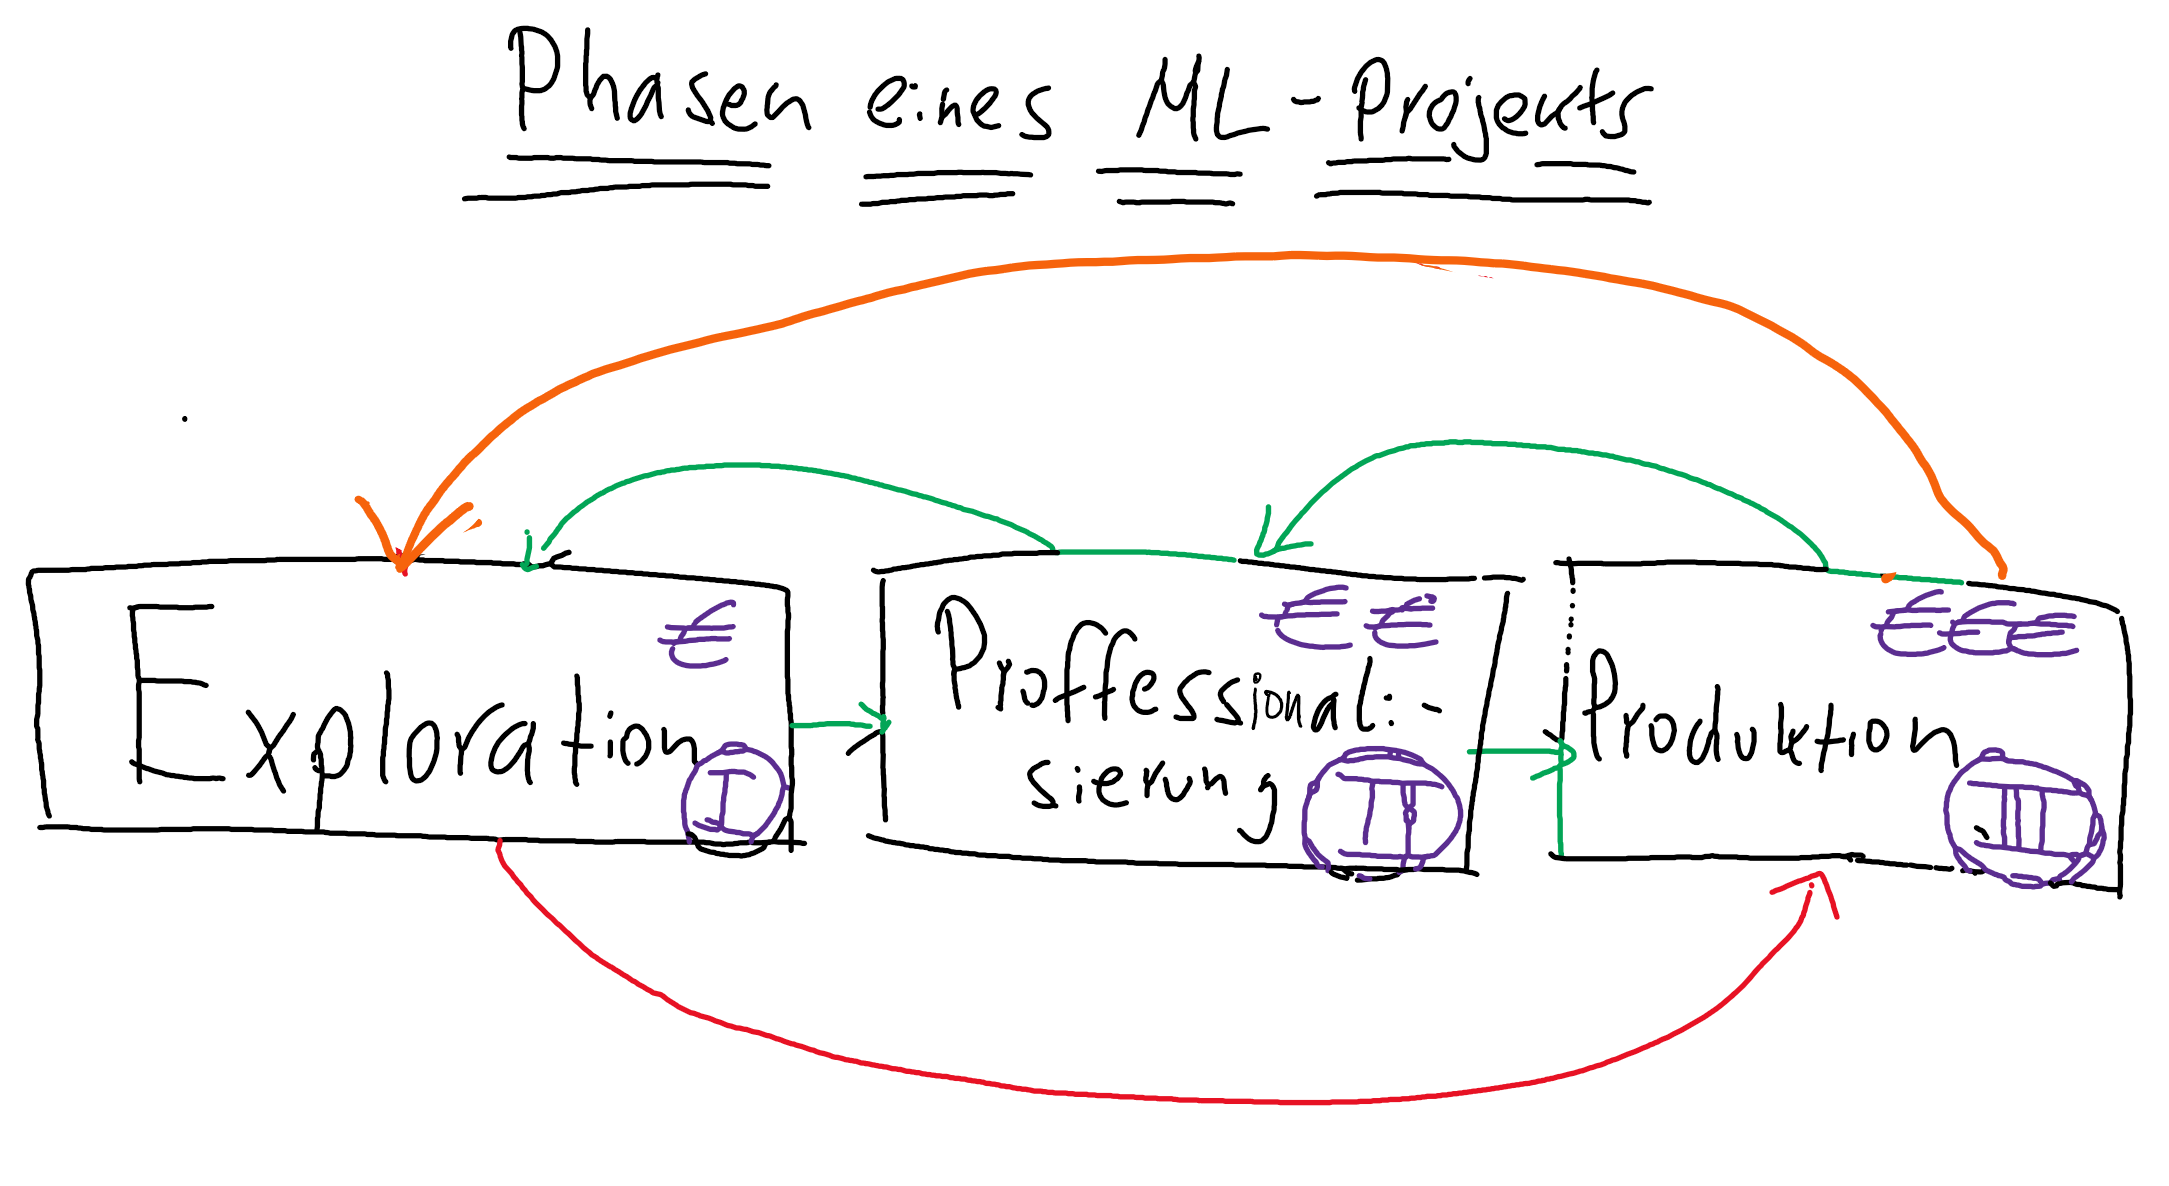 Phasen eines ML-Projekts
€
Exploration
I
€ €
Proffessionali-
sierung
II
€€€
Produktion
III